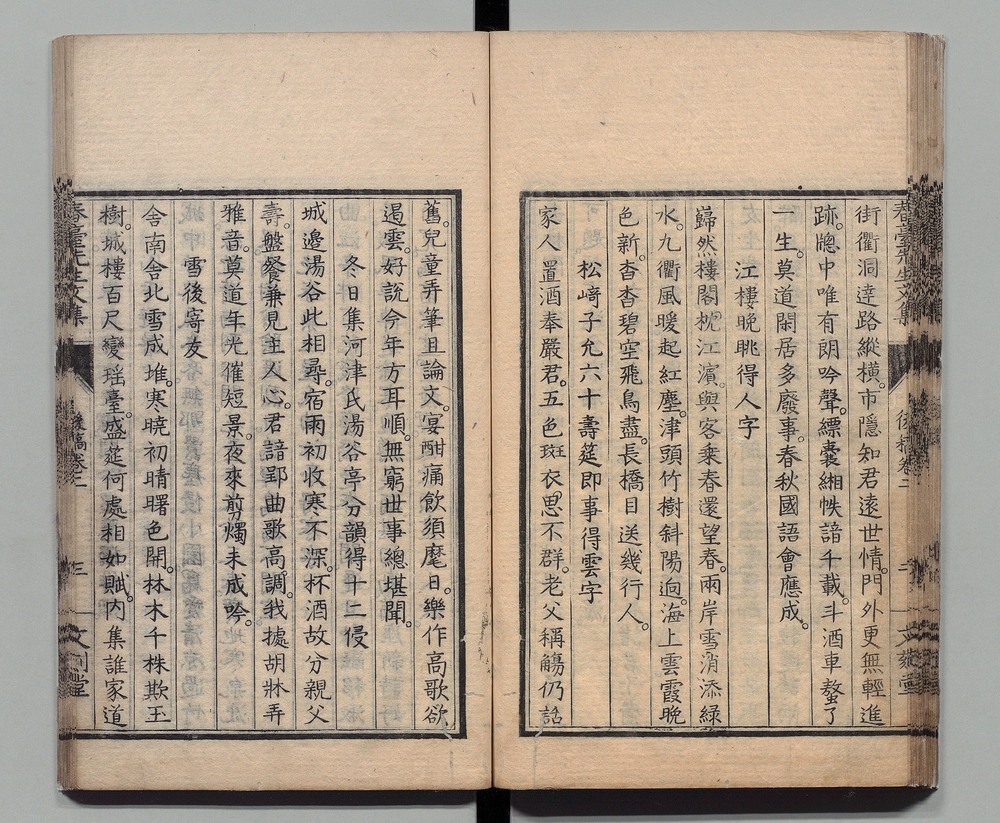 街衢洞達路縱橫。市隱知君遠世情。門外更無輕進
跡。牕中唯有朗吟聲。縹囊緗帙諳千載。斗酒車螯了
一生。莫道閑居多廢事。春秋國語會應成。
江樓晚眺得人字
巋然樓閣枕江濱。與客乘春還望春。兩岸雪消添綠
水。九衢風暖起紅塵。津頭竹樹斜陽迥。海上雲霞晚
色新。杳杳碧空飛鳥盡。長橋目送幾行人。
松﨑子允六十壽筵即事得雲字
家人置酒奉嚴君。五色斑衣思不群。老父稱觴仍話
舊。兒童弄筆且論文。宴酣痛飲須麾日。樂作高歌欲
遏雲。好說今年方耳順。無窮世事總堪聞。
冬日集河津氏湯谷亭分韻得十二侵
城邊湯谷此相尋。宿雨初收寒不深。杯酒故分親父
壽。盤餐兼見主人心。君諳郢曲歌高調。我據胡牀弄
雅音。莫道年光催短景。夜來剪燭未成吟。
雪後寄友
舍南舍北雪成堆。寒曉初晴曙色開。林木千株欺玉
樹。城樓百尺變瑤臺。盛筵何處相如賦。内集誰家道
春臺先生文集 後稿卷二 三